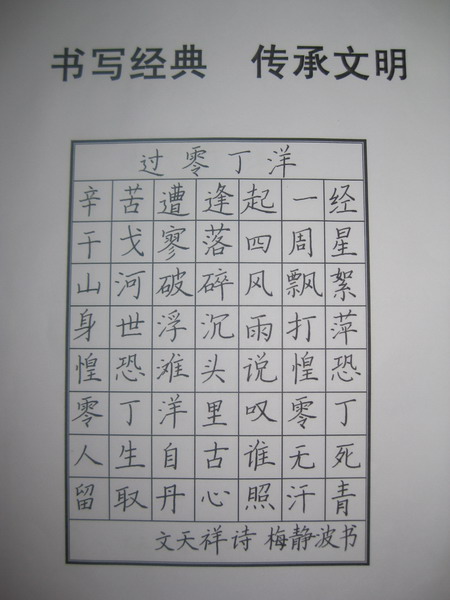 书写经典 传承文明
过零丁洋
辛苦遭逢起一经
干戈寥落四周星
山河破碎风飘絮
身世浮沉雨打萍
惶恐滩头说惶恐
零丁洋里叹零丁
人生自古谁无死
留取丹心照汗青
文天祥诗 梅静波书